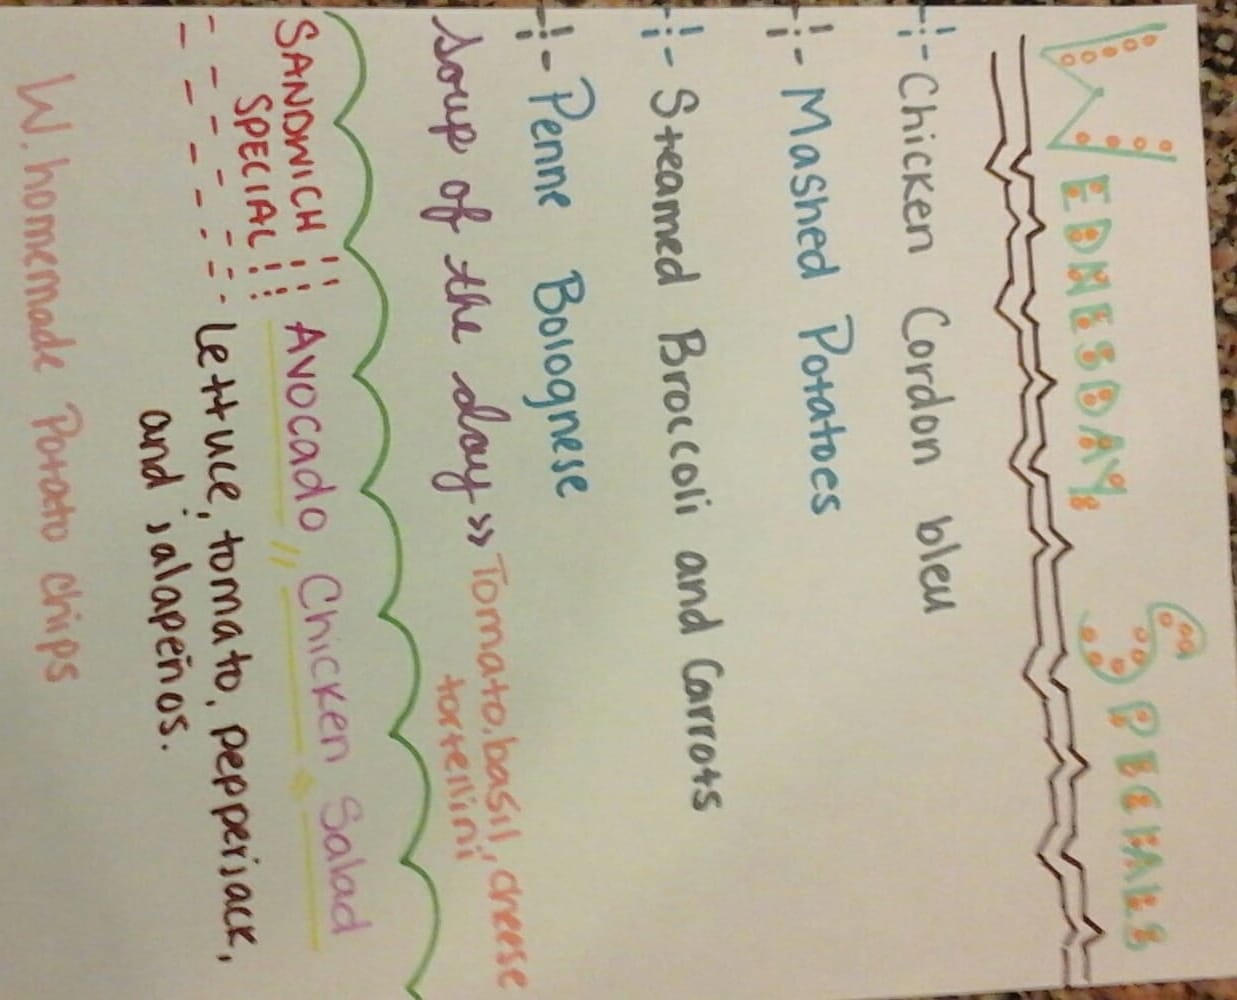 WEDNESDAY SPECIALS
-¦- Chicken Cordon bleu
-¦- Mashed Potatoes
-¦- Steamed Broccoli and Carrots
-¦- Penne Bolognese
Soup of the day >> Tomato, basil, cheese
tortellini
SANDWICH
SPECIAL
Avocado Chicken Salad
Lettuce, tomato, pepperjack,
and jalapeños.
W. homemade Potato chips